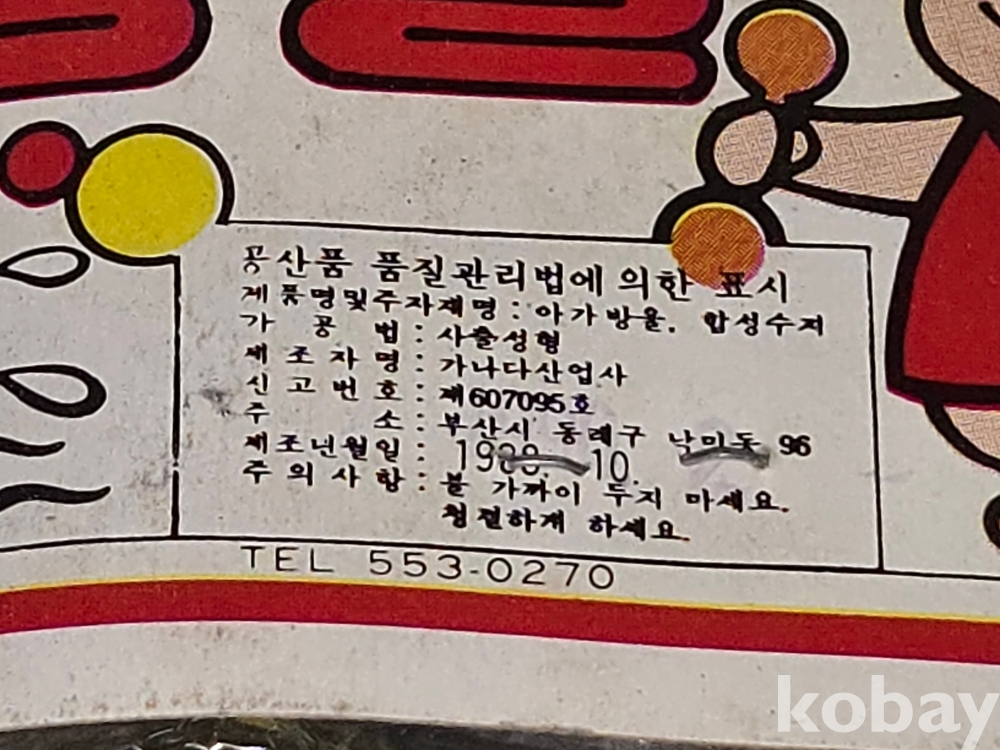 공산품 품질관리법에 의한 표시
제품명및주자재명 : 아가방울. 합성수지
가공법 : 사출성형
제조자명 : 가나다산업사
신고번호 : 제607095호
주소 : 부산시 동래구 낙미동 96
제조년월일 : 10.
주의사항 : 불 가까이 두지 마세요.
청결하게 하세요.
TEL 553-0270
kobay